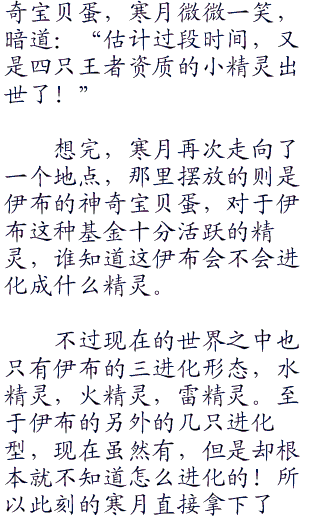 奇宝贝蛋，寒月微微一笑，
暗道：“估计过段时间，又
是四只王者资质的小精灵出
世了！”
想完，寒月再次走向了
一个地点，那里摆放的则是
伊布的神奇宝贝蛋，对于伊
布这种基金十分活跃的精
灵，谁知道这伊布会不会进
化成什么精灵。
不过现在的世界之中也
只有伊布的三进化形态，水
精灵，火精灵，雷精灵。至
于伊布的另外的几只进化
型，现在虽然有，但是却根
本就不知道怎么进化的！所
以此刻的寒月直接拿下了